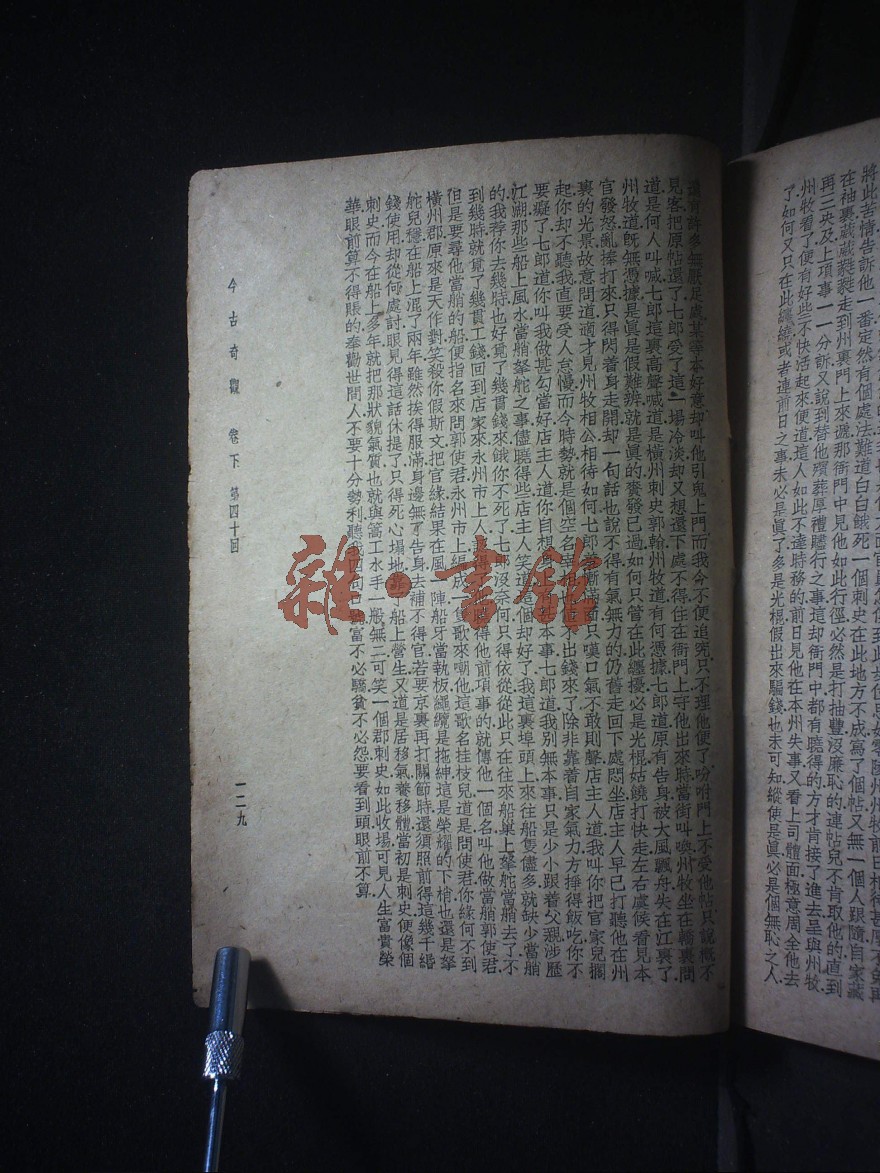 將此苦情告訴他一番定然有個處法難道白白餓死一個刺史在此地方不成寫了個帖又無一個人跟隨自家藏
在袖裏藏藏走到州裏門上來遞那衙門中見他如此行徑必然是打抽豐沒廉恥的連帖兒不肯取他的直到
再三央及上項事一一分訴又說到替他殯葬厚禮贐行之事這却衙門中都有曉得的方才肯接了進去呈與州牧
州牧看了便有好些不快活起來便道這人如此不達時務的前日見他在本州失事又看上司體面極意周全他去
了如何又只在此纏繞或者連前日之事未必是眞了多是光棍假出來騙錢也未可知縱使是眞必是個無恥之人
還有許多無厭足處某等本好意却叫他引鬼上門而我今不便追究只不理他便了吩咐門上不受他帖只說概不
見客把原帖還了七郎受了這一場冷淡却又想還下處不得住在衙門上守他出來時當街叫喚州牧坐在轎裏問
道是何人叫喊七郎這裏高聲喊道是橫州刺史郭翰州牧道有何憑據七郎道原有告身被大風飄舟失在江裏了
州牧道旣無憑據是眞是假難辨就是眞的賚發已過如何只管在此纏擾必是光棍姑饒打快走左右虞候看見本
官發怒亂棒打來只得閃着身走開却一句話也說不得有氣無力的仍舊走回下處悶坐店主人早已打聽他在州
裏的光景故意問道適才見州牧相公相待如何七郎羞慚滿面只嘆口氣不敢則聲店主人道我叫你把官家兒擱
起你却不聽我直要受人怠慢而今時勢就是個空名宰相也當不出錢來了除非靠着自家氣力方掙得飯吃你不
要癡了七郎道你叫我做甚勾當好店主人道你自想身上有何本事七郎道我別無本事只是少小跟着父親涉歷
江湖那些船上風水當艄拏舵之事儘曉得些店主人笑道這個却好了我這裏埠頭上來往船隻儘多就缺少當艄
的我荐你去幾時也好覓了幾貫錢來餓你不死了七郎沒奈何只得依從從此只在往來船隻上拏舵當艄去了不
到幾時就覓了幾貫工錢回到店家來永州市上人認得了他曉得他前項事的就傳他一個名叫他做當艄郭使君
但是要尋他當艄的船便指名來問郭使君永州市上編成一隻歌來嘲他這歌名挂枝兒道是問使君你緣何不到
橫州郡原來是天作對笑殺你假斯文把官緣結果在風一陣船牙當執板繩纜是拖紳這是榮耀的下梢也還是拏
舵兒穩在船上混了兩年雖然挨得服滿身邊無了告身去補不得官若要京裏再打關節時還須照前得這幾千緡
錢使用却從何處討眼見得這話休提了只得死心塌地靠了船上營生又道是居移氣養移體當初是刺史便像個
刺史而今在船上多年就把那狀貌氣質也就與篙工水手一般無二可笑一個郡刺史如此收場可見人生富貴榮
華眼前算不得賬的奉勸世間人不要十分勢利聽我四句口號富不必驕貧不必怨要看到頭眼前不算
今古奇觀 卷下 第四十回
一二九
雜·書館